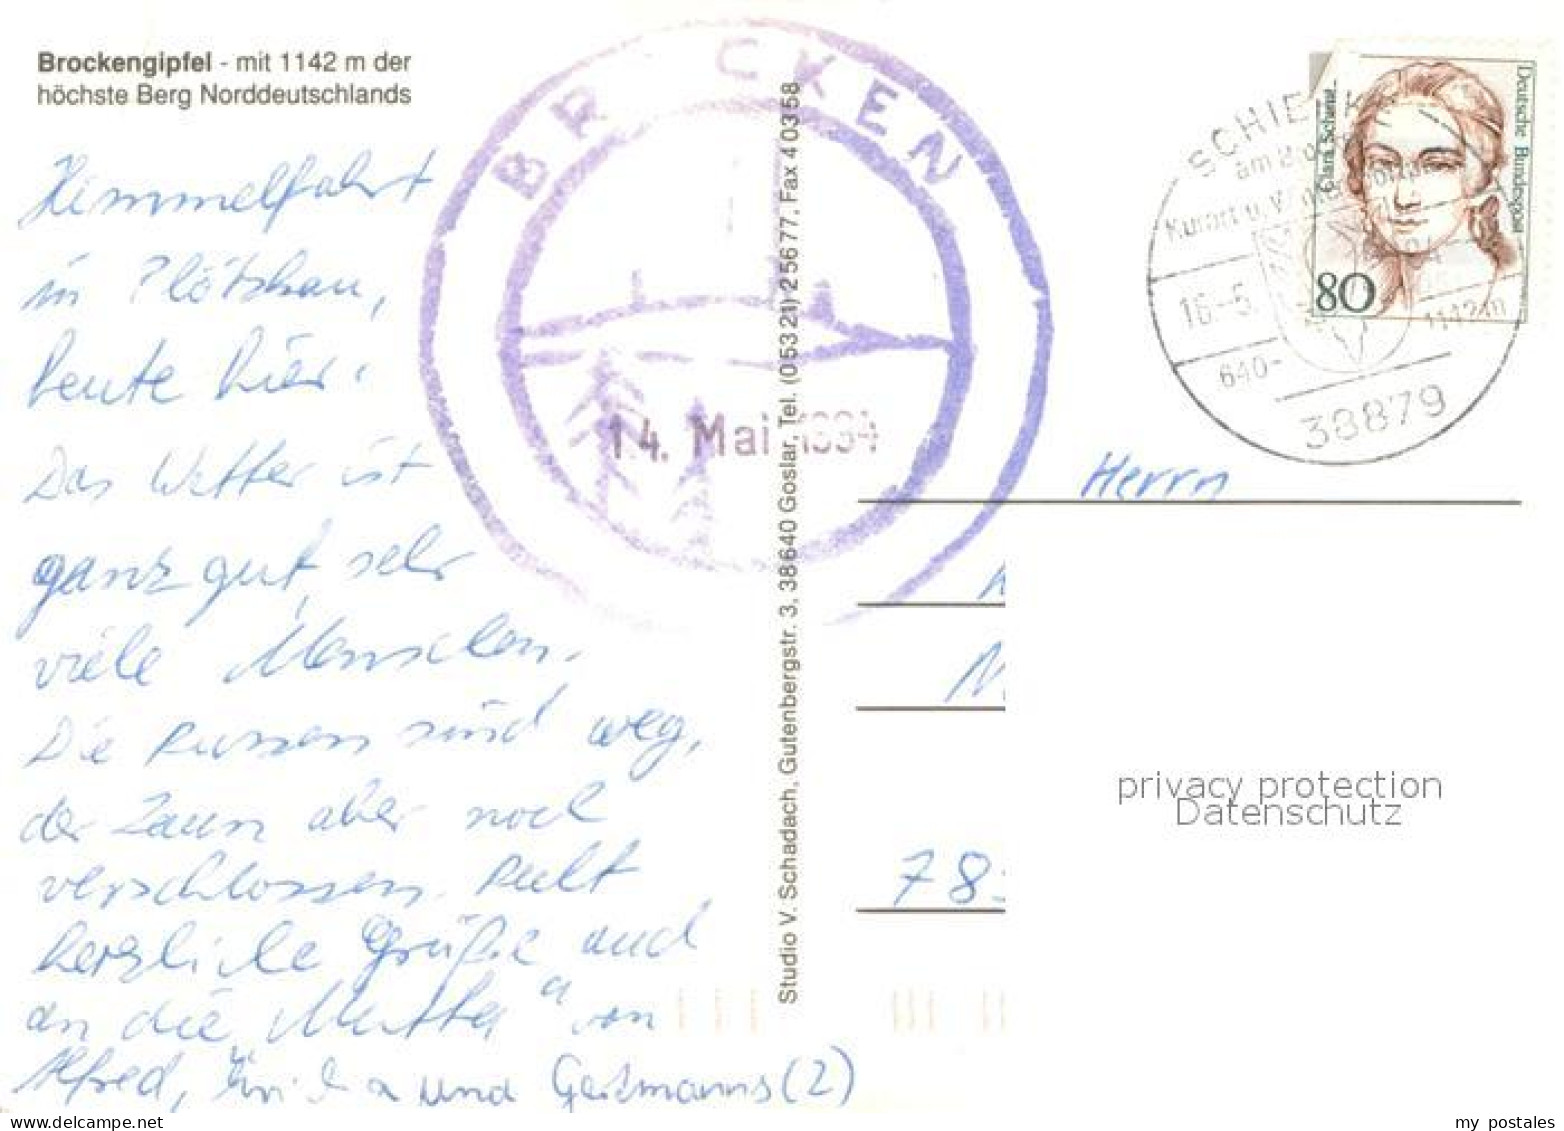 Brockengipfel - mit 1142 m der
höchste Berg Norddeutschlands
Himmelfahrt
in Plötzkau,
heute hier.
Das Wetter ist
ganz gut, sehr
viele Menschen.
Die Russen sind weg,
der Zaun aber noch
verschlossen.
herzliche Grüße auch
an die "Mutter" von
Alfred, und Geismanns (2)
BROCKEN
14. Mai 1994
Studio V. Schadach, Gutenbergstr. 3, 38640 Goslar, Tel. (05321) 25677, Fax 40358
SCHIERKE
am Brocken
Kurort u.
16.-5.
1142m
640-
38879
Deutsche Bundespost
Clara Schumann
80
Herrn
78
privacy protection
Datenschutz
my postales